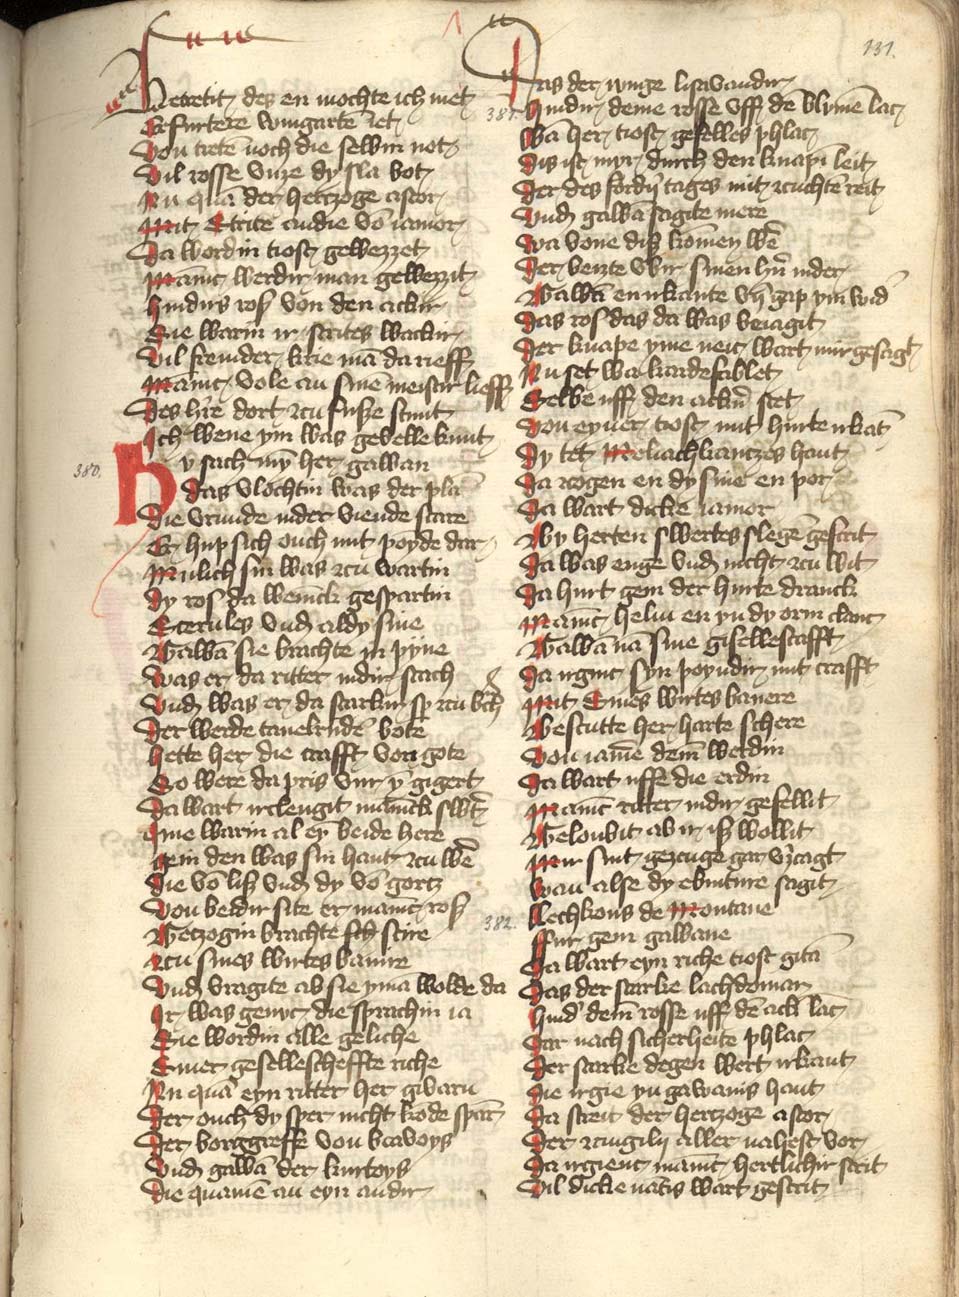 131.
Getretit des en mochte ich niet
Erfurtere wingarte iet
Von trete noch die selbin not
Vil rosse vnze dy sla bot
Nu quā der hertzoge astor
Mit Etrite andie vō iamor
Da wordin tiost gewezzet
Manic werdir man gewezzit
hindirs ros von den ackir
Sie warin ir strites wackir
Vil fremder krie mā da rieff
Manic vole an sinē meistir lieff
Des hīre dort zcu fusze stunt
Ich wene ym was gevelle kunt
380.
Hy sach myn her gawan
das vlochtin was der plā
Die vrunde inder viende scare
Er hup sich ouch mit poyde dar
Mulich sin was zcu wartin
Dy ros da wenick gespartin
Scerules vnd aldy sine
Gawā sie brachte in pyne
Was er da ritter nidir stach
Vnd was er da starkir sp zcu bch
Der werde tauelrudē bote
hette her die crafft von gote
So were da pris vur yn gigert
Da wart irclengit manick swt
Ime warin al ey beide here
gein den was sin hant zcu wē
Die vō lisz vnd dy vō gortz
Von beidir site er manic rosz
Getzogin brachte sch scire
zcu sines wirtes banire
Vnd vragite ab sie yman wolde da
Ir was genuc die sprachin ia
Sie wordin alle geliche
Siner gesellescheffte riche
Nu quā eyn ritter her givarn
Der ouch dy sper nicht kōde sparn
Der borggreffe von beavoys
Vnd gawā der kurtoys
Die quamē an eyn andir
381.
Das der iunge lisavandir
hindir deme rosse vff dē blumē lac
Wā her tiost gefelles phlac
Dis ist myr durch den knapī leit
Der des fordi tages mit zcuchtē reit
Vnd gawā sagite mere
wa vone disz kōmen wē
Der beizte vbir sinen hrn nider
Gawā enirkante vn gap ym wid
Das ros das da was beiagit
Der knape yme neic wart mir gesagt
Nu set wa kardefablet
Selbe uff den ackir stet
Von eyner tiost mit hurte irkāt
Dy tet Meliachkantzes hant
Da zcogen en dy sine en por
Da wart dicke iamor
By herten swertes slegē gescrit
Da was enge vnd nicht zcu wit
Da hurt gein der hurte dranck
Manic helm en yn dy orin clanc
Gawā nā sine gisellescafft
Da irginc syn poyndir mit crafft
Mit Sines wirtes banere
Bescutte her harte schere
Von iamē dem werdin
Da wart uffe die erdin
Manic ritter nidir gefellit
Geloubit ab ir isz wollit
Mir sint gezcuge gar v'zcagt
wan alse dy ebinture sagit
382.
llechkons de Montane
ffur gein gawane
Da wart eyn riche tiost gitā
Das der starke lachdoman
hind' dem rosse uff dē ack lac
Dar nach sicherheite phlac
Der starke degen wert irkant
Die irgie yn gawanis hant
Da streit der hertzoge astor
Der zcinglin aller nahest vor
Da irgienc manic hertlichir strit
Vil dicke nantis wart gescrit